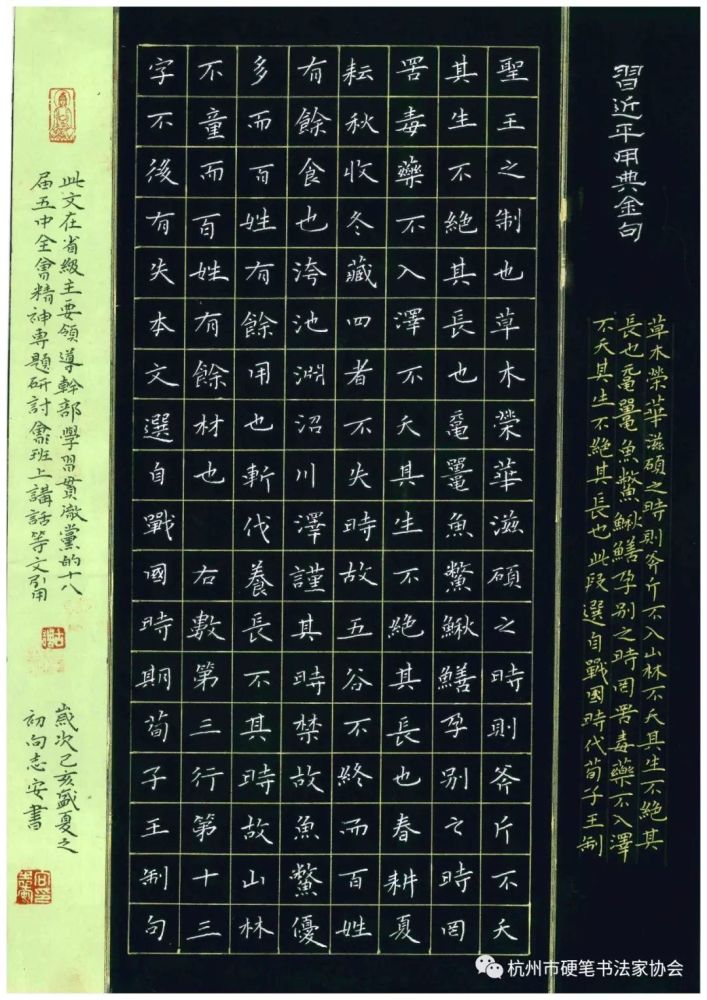 習近平用典金句
草木榮華滋碩之時則斧斤不入山林不夭其生不絕其
長也黿鼉魚鱉鰍鱔孕別之時罔罟毒藥不入澤
不夭其生不絕其長也此段選自戰國時代荀子王制
聖王之制也草木榮華滋碩之時則斧斤不夭
其生不絕其長也黿鼉魚鱉鰍鱔孕別之時罔
罟毒藥不入澤不夭其生不絕其長也春耕夏
耘秋收冬藏四者不失時故五谷不終而百姓
有餘食也洿池淵沼川澤謹其時禁故魚鱉優
多而百姓有餘用也斬伐養長不其時故山林
不童而百姓有餘材也 右數第三行第十三
字不後有失本文選自戰國時期荀子王制句
此文在省級主要領導幹部學習貫澈黨的十八
屆五中全會精神專題研討會班上講話等文引用
歲次己亥盛夏之
初向志安書
杭州市硬笔书法家协会